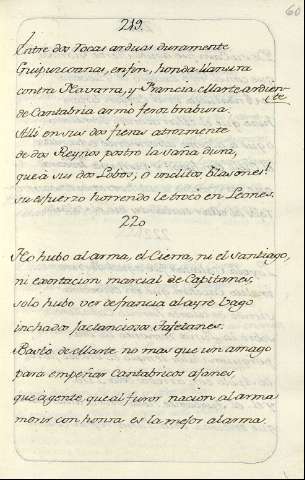 60
219.
Entre dos rocas arduas duramente
Guipuzcoanas, en fin, honda llanura
contra Navarra, y Francia Marte ardien-
te
de Cantabria armò feroz brabura.
Alli en sus dos fieras atrozmente
de dos Reynos postrò la saña dura,
que à sus dos Lobos, ò inclitos blasones!
su esfuerzo horrendo le trocò en Leones.
220
No hubo al arma, el Cierra, ni el Santiago,
ni exortacion marcial de Capitanes,
solo hubo ver de francia al ayre bago
inchados jactanciosos Tafetanes.
Bastò de Marte no mas que un amago
para empeñar Cantabricos afanes,
que à gente, que al furor nacion al arma
morir con honra es la mejor alarma.